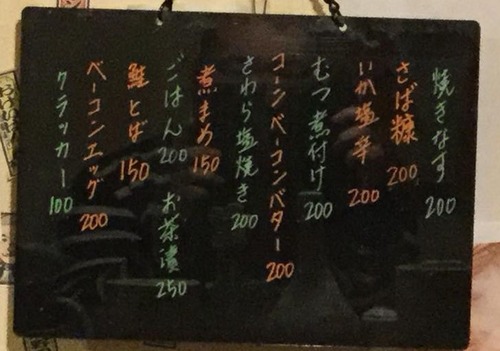 焼きなす 200
さば糠 200
いか塩辛 200
むつ煮付け 200
コーンベーコンバター 200
さわら塩焼き 200
煮まめ 150
ごはん 200 お茶漬 250
鮭とば 150
ベーコンエッグ 200
クラッカー 100